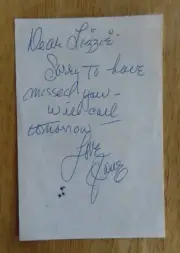 Dear Lizzie
Sorry to have
missed you -
will call
tomorrow
Love